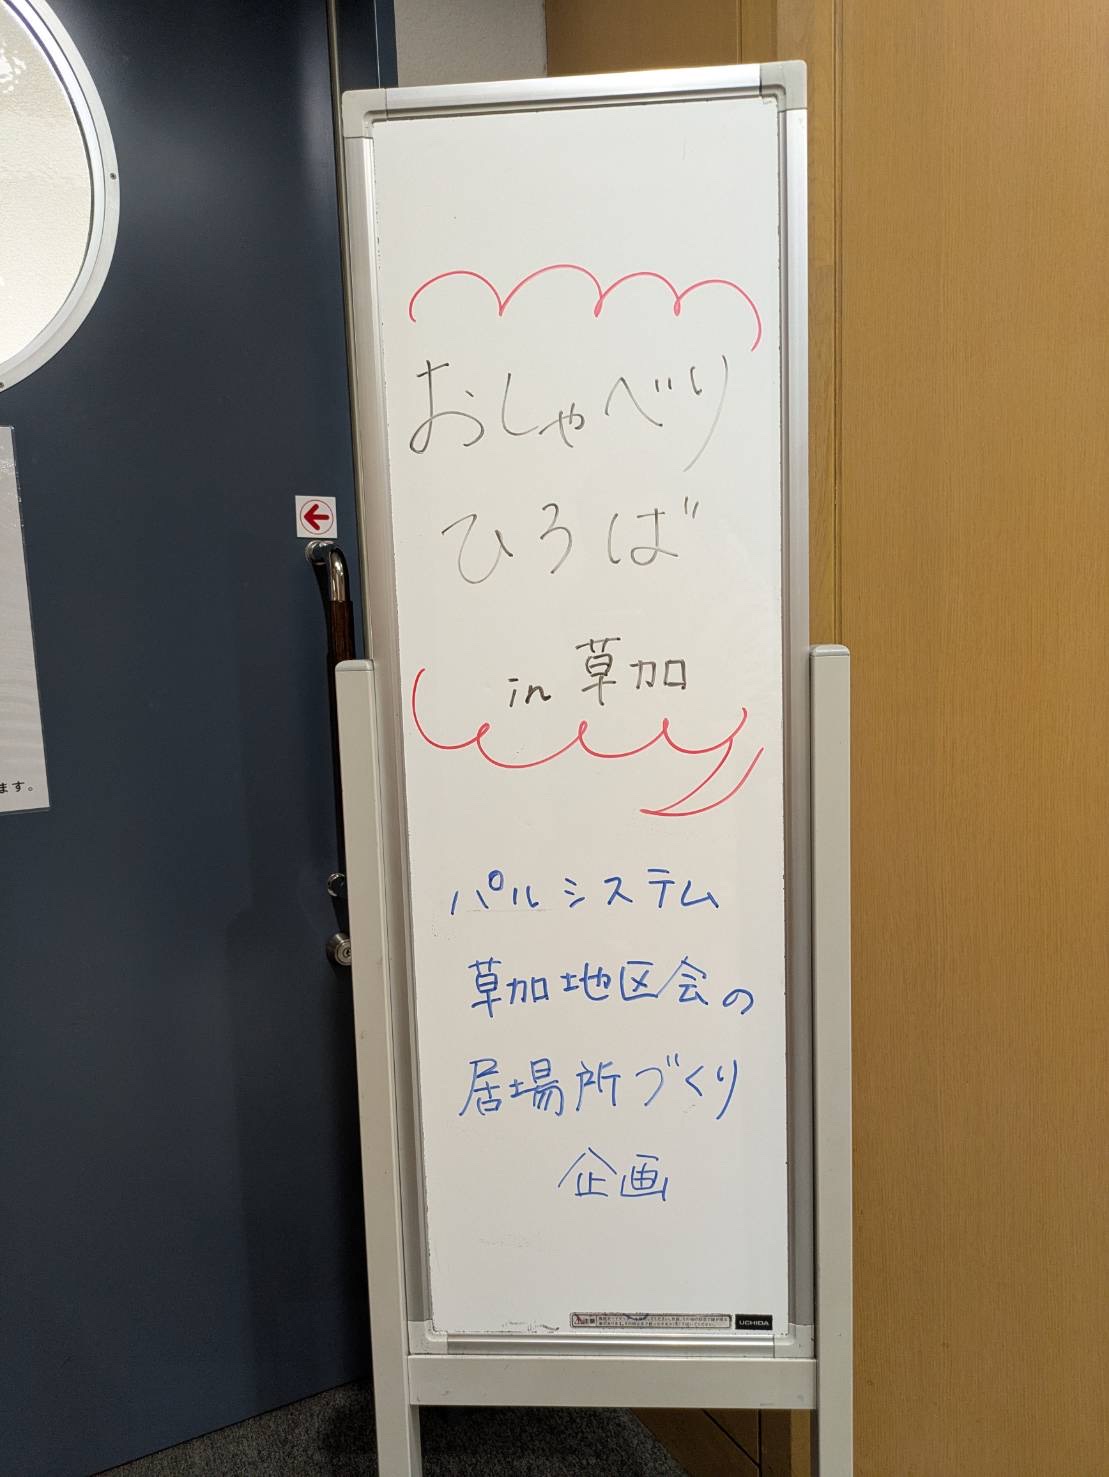 おしゃべり
ひろば
in 草加
パルシステム
草加地区会の
居場所づくり
企画
ます。
UCHIDA